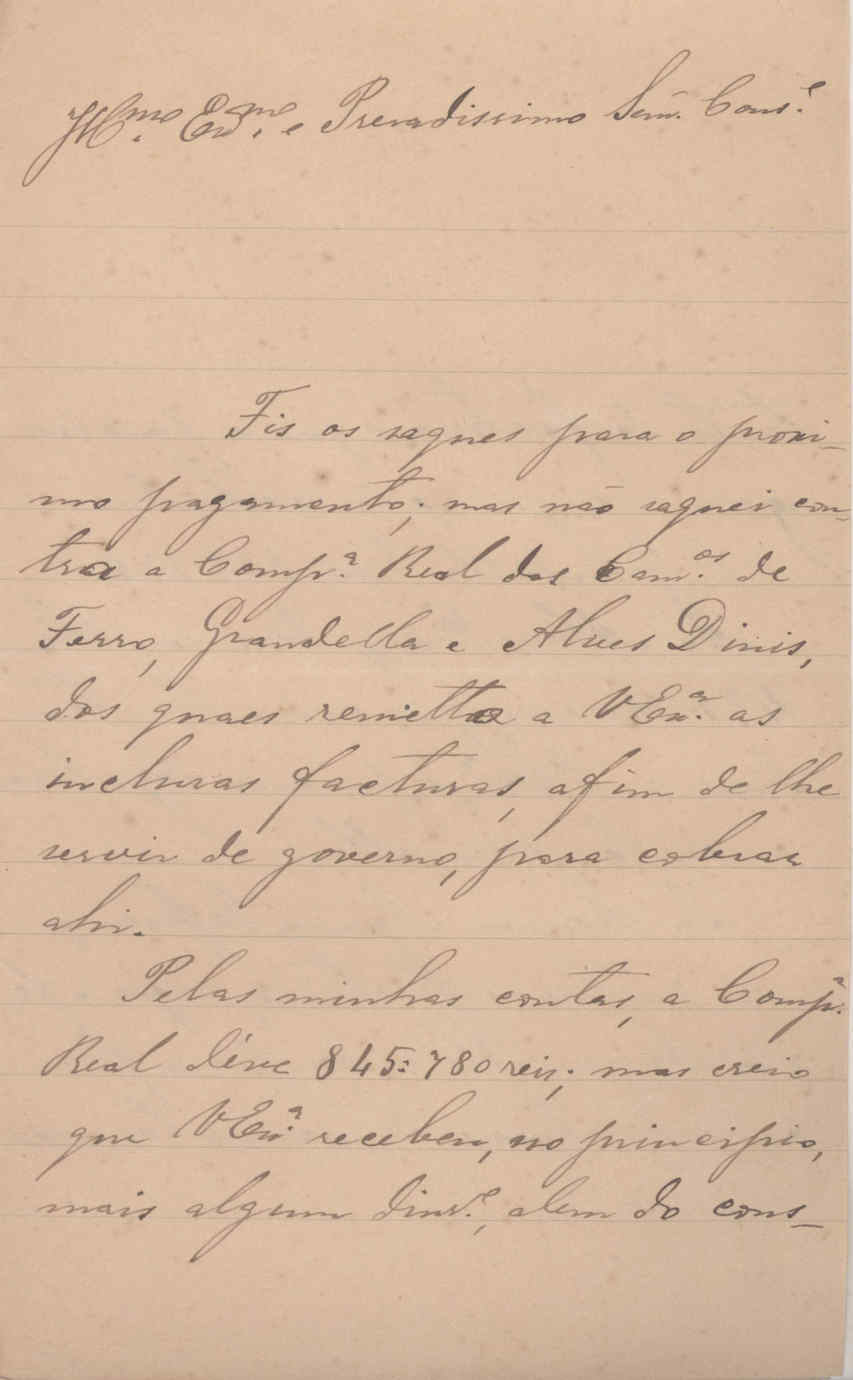 Illmo. Exmo. e Presadissimo Senr. Conse.
Fis os saques para o proxi-
mo pagamento; mas não saquei con-
tra a Compa. Real dos Camos. de
Ferro, Grandella e Alves Dinis,
dos quaes remetto a VExa. as
inclusas facturas, afim de lhe
servir de governo, para cobrar
ahi.
Pelas minhas contas, a Compa.
Real déve 845:780 reis; mas creio
que VExa. recebeu, no principio,
mais algum dinro., alem do cons-